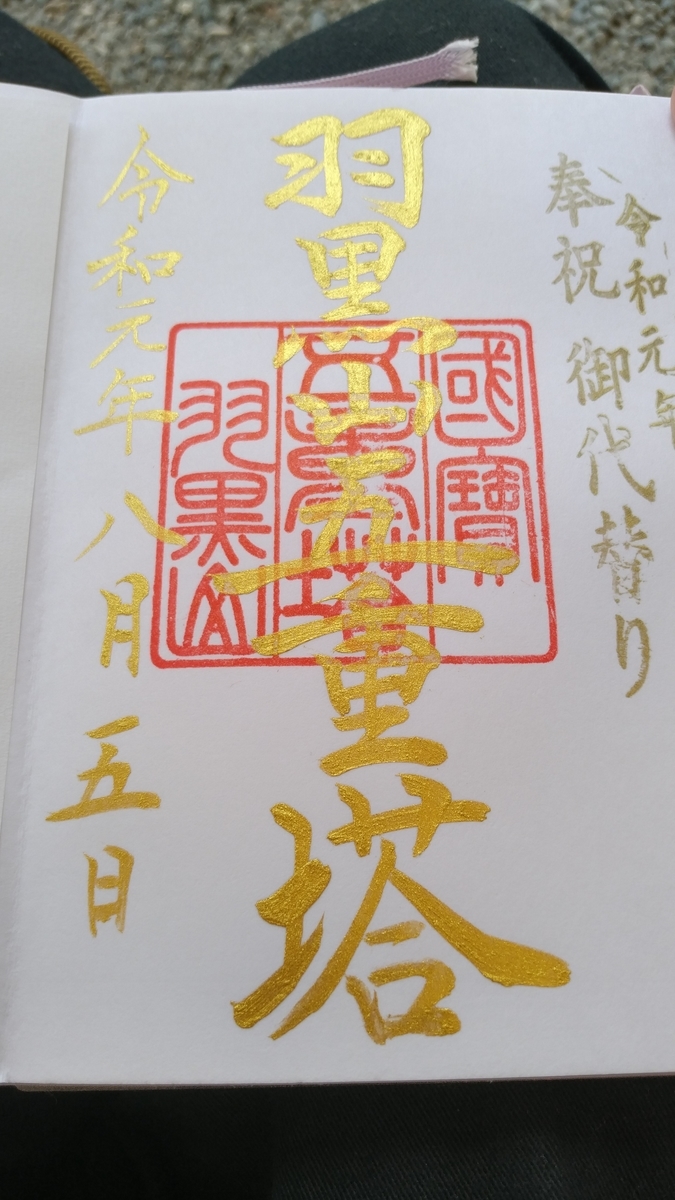 令和元年
奉祝 御代替り
羽黒山五重塔
國寶
五重塔
羽黒山
令和元年 八月 五日